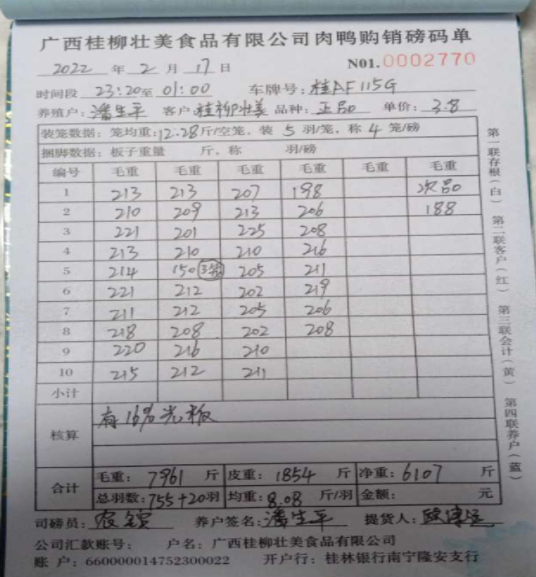 广西桂柳壮美食品有限公司肉鸭购销磅码单
2022 年 2 月 17 日 NO1.0002770
时间段 23:20至01:00 车牌号:桂AF115G
养殖户:潘生平 客户:桂柳壮美 品种:正品 单价:3.8
装笼数据:笼均重:12.28斤/空笼,装 5 羽/笼,称 4 笼/磅
捆脚数据:板子重量 斤,称 羽/磅
编号 毛重 毛重 毛重 毛重 毛重 毛重
1 213 213 207 198 次品
2 210 209 213 206 188
3 221 201 225 208
4 213 210 210 216
5 214 150 3笼 205 211
6 221 212 202 219
7 211 212 205 206
8 218 208 202 208
9 220 216 210
10 215 212 211
小计
核算 有16%光板
合计 毛重:7961 斤 皮重:1854 斤 净重:6107 斤
总羽数:755+20羽 均重:8.08 斤/羽 金额: 元
司磅员: 养户签名:潘生平 提货人:
公司汇款账号: 户名:广西桂柳壮美食品有限公司
账 户:660000014752300022 开户行:桂林银行南宁隆安支行
第一联存根(白) 第二联客户(红) 第三联会计(黄) 第四联养户(蓝)